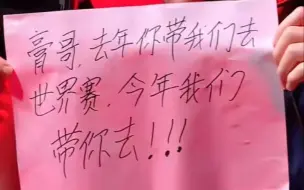 膏哥，去年你带我们去
世界赛，今年我们
带你去!!!